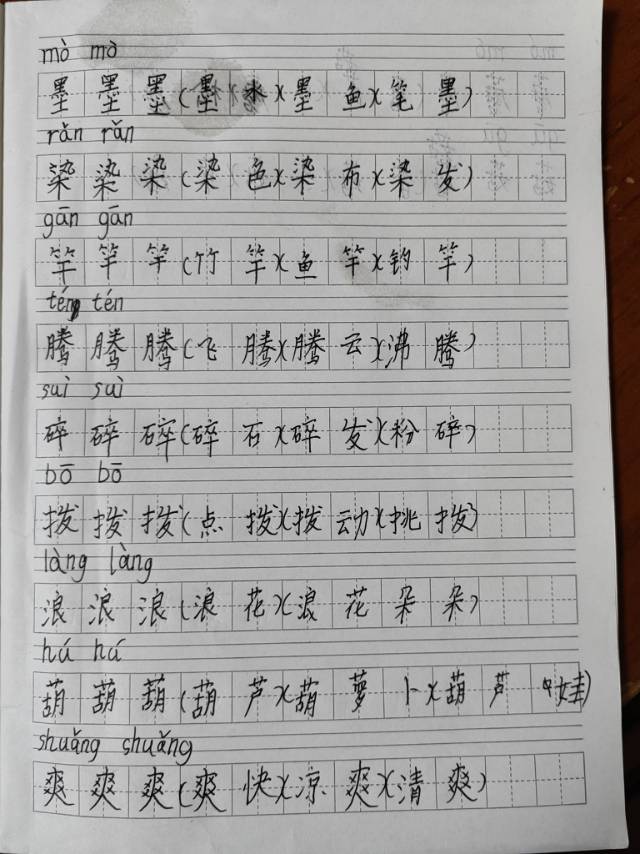 mò mò
墨 墨 墨 (墨 水) (墨 鱼) (笔 墨)
rǎn rǎn
染 染 染 (染 色) (染 布) (染 发)
gān gān
竿 竿 竿 (竹 竿) (鱼 竿) (钓 竿)
téng tén
腾 腾 腾 (飞 腾) (腾 云) (沸 腾)
suì suì
碎 碎 碎 (碎 石) (碎 发) (粉 碎)
bō bō
拨 拨 拨 (点 拨) (拨 动) (挑 拨)
làng làng
浪 浪 浪 (浪 花) (浪 花 朵 朵)
hú hú
葫 葫 葫 (葫 芦) (葫 萝 卜) (葫 芦 娃)
shuǎng shuǎng
爽 爽 爽 (爽 快) (凉 爽) (清 爽)